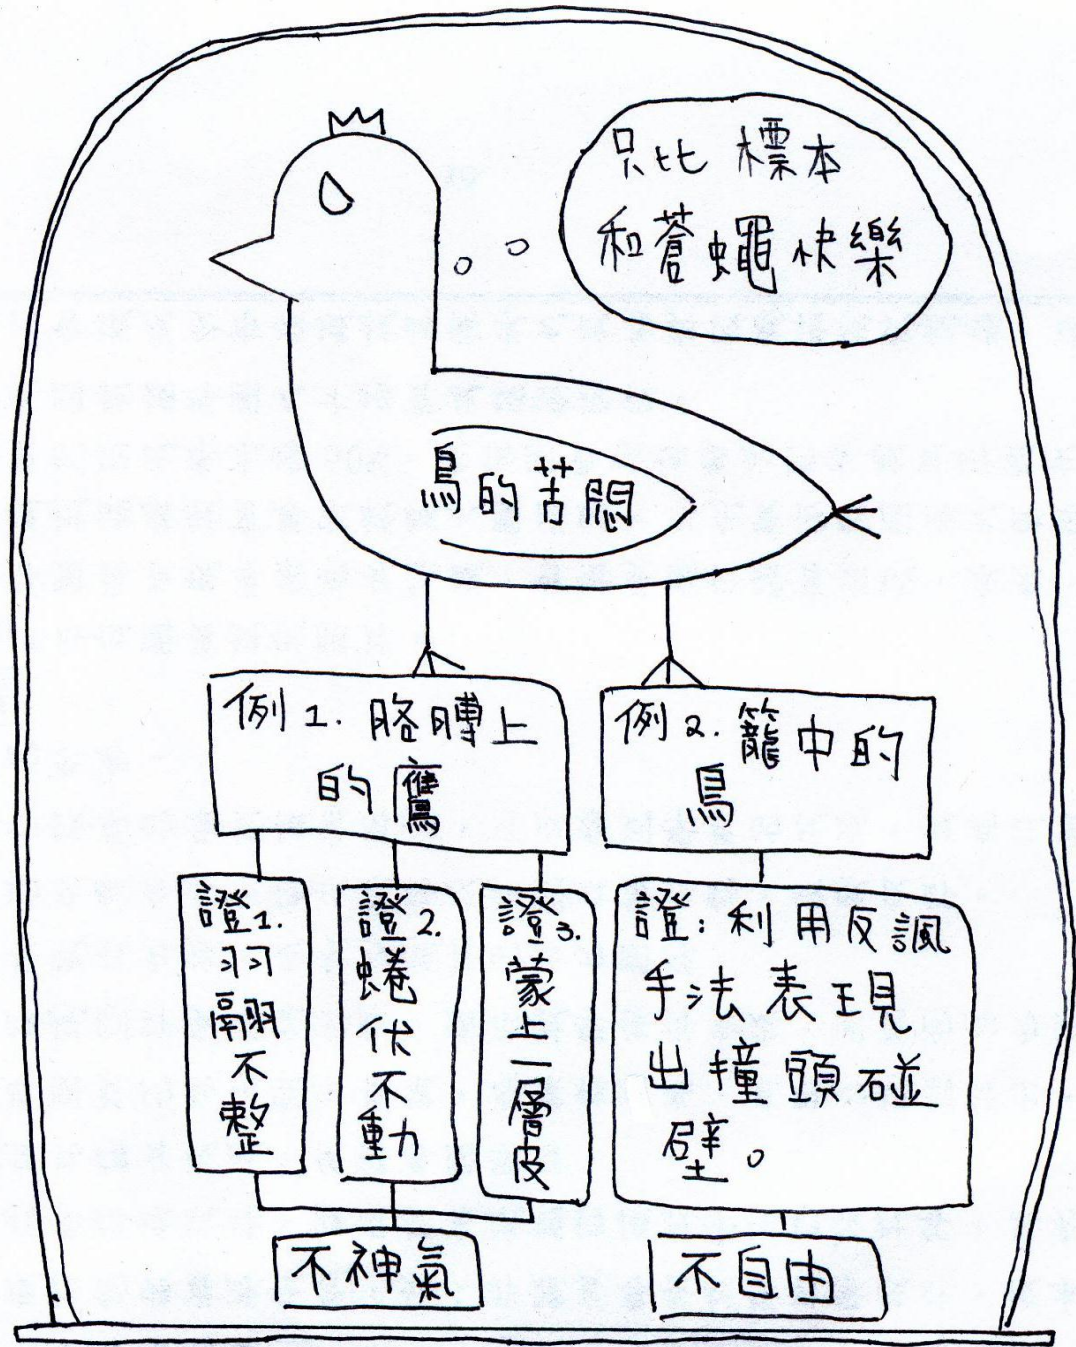 只比標本
和蒼蠅快樂
鳥的苦悶
例1. 胳膊上
的鷹
例2. 籠中的
鳥
證1.羽翮不整
證2.蜷伏不動
證3.蒙上一層皮
證:利用反諷
手法表現
出撞頭碰
壁。
不神氣
不自由